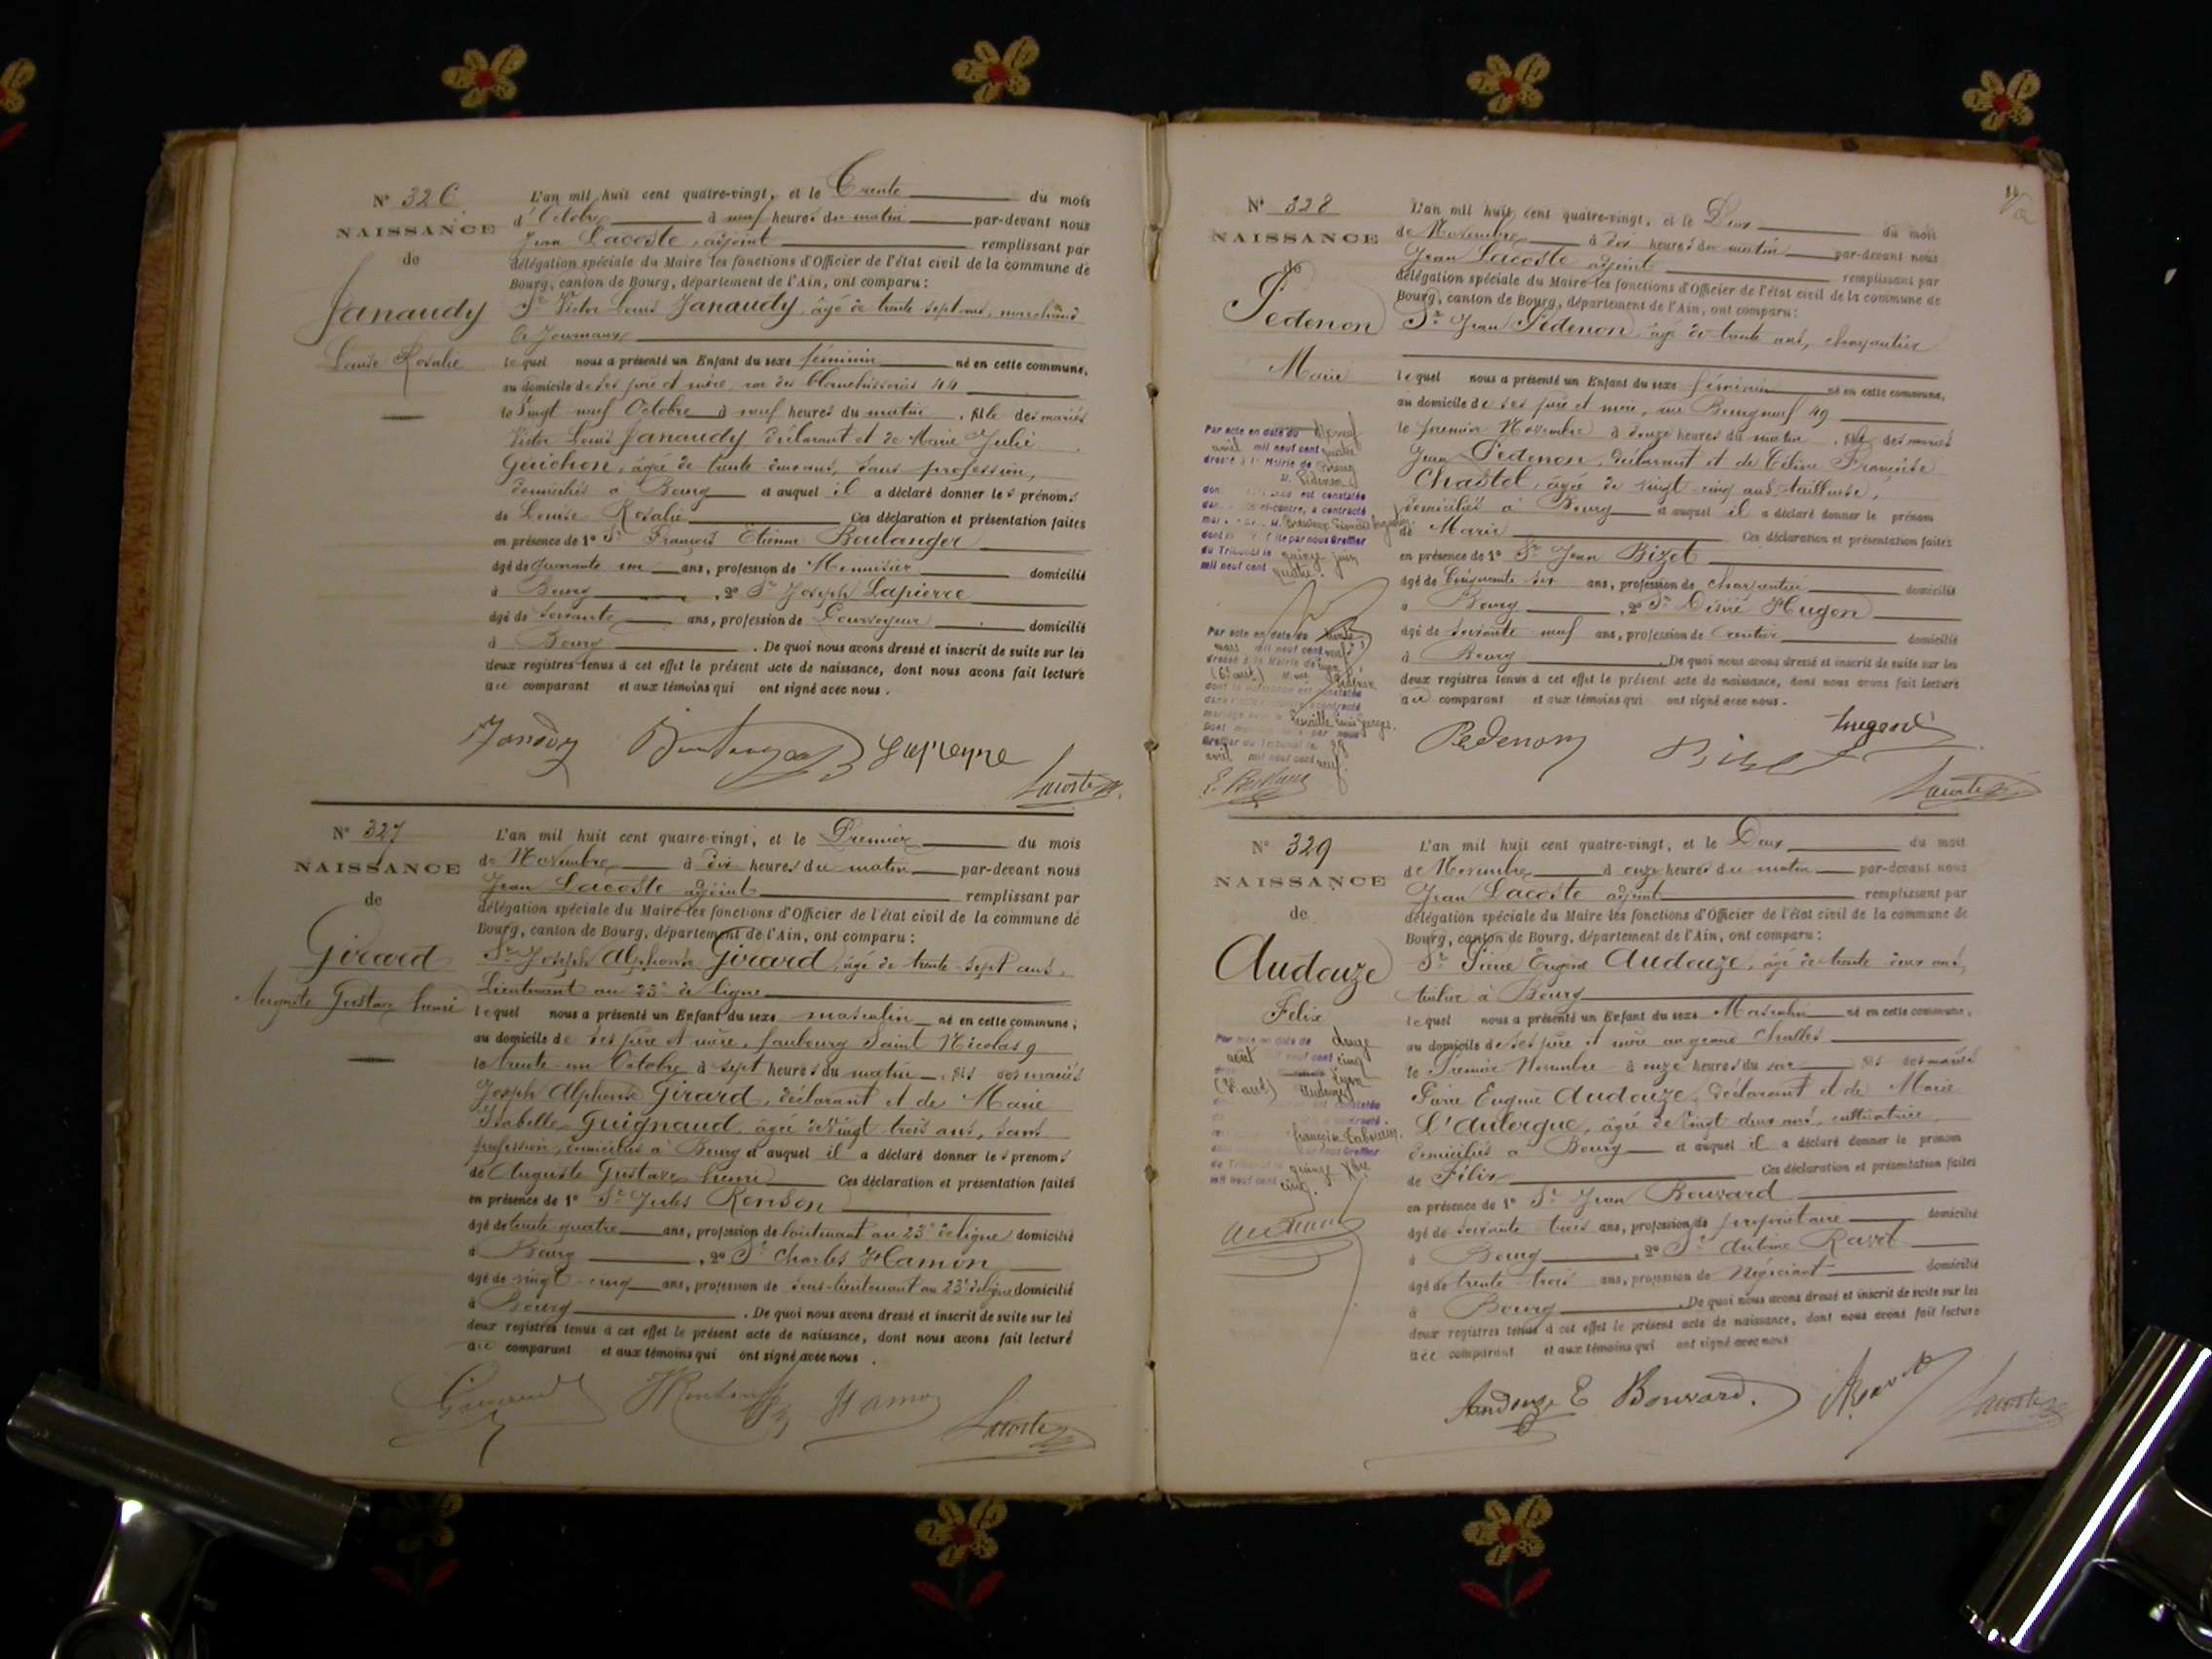 N° 326
NAISSANCE
de
Janaudy
Louise Rosalie
L'an mil huit cent quatre-vingt, et le Trente du mois
d'Octobre à neuf heures du matin par-devant nous
Jean Lacoste, adjoint remplissant par
délégation spéciale du Maire les fonctions d'Officier de l'état civil de la commune de
Bourg, canton de Bourg, département de l'Ain, ont comparu :
Sr Victor Louis Janaudy, âgé de trente sept ans, marchand
de Journaux
lequel nous a présenté un Enfant du sexe féminin né en cette commune,
au domicile de ses père et mère, rue des blanchisseries 44
le Vingt neuf Octobre à neuf heures du matin, fille des mariés
Victor Louis Janaudy déclarant et de Marie Julie
Guichon, âgée de trente deux ans, sans profession,
domiciliés à Bourg et auquel il a déclaré donner les prénoms
de Louise Rosalie Ces déclaration et présentation faites
en présence de 1° Sr François Etienne Boulanger
âgé de quarante un ans, profession de Menuisier domicilié
à Bourg, 2° Sr Joseph Lapierre
âgé de soixante ans, profession de domicilié
à Bourg. De quoi nous avons dressé et inscrit de suite sur les
deux registres tenus à cet effet le présent acte de naissance, dont nous avons fait lecture
au comparant et aux témoins qui ont signé avec nous.
Lacoste
N° 327
NAISSANCE
de
Girard
Auguste Gustave henri
L'an mil huit cent quatre-vingt, et le Premier du mois
de Novembre à dix heures du matin par-devant nous
Jean Lacoste adjoint remplissant par
délégation spéciale du Maire les fonctions d'Officier de l'état civil de la commune de
Bourg, canton de Bourg, département de l'Ain, ont comparu :
Sr Joseph Alphonse Girard, âgé de trente sept ans,
Lieutenant au 23e de ligne
lequel nous a présenté un Enfant du sexe masculin né en cette commune,
au domicile de ses père et mère, faubourg Saint Nicolas 9
le trente un Octobre à sept heures du matin, fils des mariés
Joseph Alphonse Girard, déclarant et de Marie
Isabelle Guignaud, âgée de vingt trois ans, sans
profession, domiciliés à Bourg et auquel il a déclaré donner les prénoms
de Auguste Gustave henri Ces déclaration et présentation faites
en présence de 1° Sr Jules Renson
âgé de trente quatre ans, profession de lieutenant au 23e de ligne domicilié
à Bourg, 2° Sr Charles Hamon
âgé de vingt cinq ans, profession de sous-lieutenant au 23e de ligne domicilié
à Bourg. De quoi nous avons dressé et inscrit de suite sur les
deux registres tenus à cet effet le présent acte de naissance, dont nous avons fait lecture
au comparant et aux témoins qui ont signé avec nous.
Hamon
Lacoste
N° 328
NAISSANCE
de
Pedenon
Marie
Par acte en date du neuf
avril mil neuf cent quatre
dressé à la Mairie de Bourg
M. Pedenon
est constatée
ci-contre, a contracté
par nous Greffier
du Tribunal le quinze juin
mil neuf cent quatre.
Par acte en date du
mars mil neuf cent neuf
dressé à la Mairie de Lyon
Pedenon
avril mil neuf cent neuf.
L'an mil huit cent quatre-vingt, et le Deux du mois
de Novembre à dix heures du matin par-devant nous
Jean Lacoste adjoint remplissant par
délégation spéciale du Maire les fonctions d'Officier de l'état civil de la commune de
Bourg, canton de Bourg, département de l'Ain, ont comparu :
Sr Jean Pedenon, âgé de trente ans, charpentier
lequel nous a présenté un Enfant du sexe féminin né en cette commune,
au domicile de ses père et mère, rue Bourgneuf 49
le premier Novembre à douze heures du matin, fille des mariés
Jean Pedenon, déclarant et de Céline Françoise
Chastel, âgée de vingt cinq ans, tailleuse,
domiciliés à Bourg et auquel il a déclaré donner le prénom
de Marie Ces déclaration et présentation faites
en présence de 1° Sr Jean Bizet
âgé de Cinquante six ans, profession de charpentier domicilié
à Bourg, 2° Sr Désiré Hugon
âgé de soixante neuf ans, profession de rentier domicilié
à Bourg. De quoi nous avons dressé et inscrit de suite sur les
deux registres tenus à cet effet le présent acte de naissance, dont nous avons fait lecture
au comparant et aux témoins qui ont signé avec nous.
Pedenon
Bizet
Lacoste
N° 329
NAISSANCE
de
Audouze
Félix
août mil neuf cent cinq
Lyon
Audouze
quinze Xbre
mil neuf cent cinq.
L'an mil huit cent quatre-vingt, et le Deux du mois
de Novembre à onze heures du matin par-devant nous
Jean Lacoste adjoint remplissant par
délégation spéciale du Maire les fonctions d'Officier de l'état civil de la commune de
Bourg, canton de Bourg, département de l'Ain, ont comparu :
Sr Pierre Eugène Audouze, âgé de trente deux ans,
à Bourg
lequel nous a présenté un Enfant du sexe Masculin né en cette commune,
au domicile de ses père et mère au grand Challes
le Premier Novembre à onze heures du soir fils des mariés
Pierre Eugène Audouze, déclarant et de Marie
L'Aulergue, âgée de vingt deux ans, cultivatrice,
domiciliés à Bourg et auquel il a déclaré donner le prénom
de Félix Ces déclaration et présentation faites
en présence de 1° Sr Jean Bouvard
âgé de soixante trois ans, profession de propriétaire domicilié
à Bourg, 2° Sr Antoine Ravet
âgé de trente trois ans, profession de Négociant domicilié
à Bourg. De quoi nous avons dressé et inscrit de suite sur les
deux registres tenus à cet effet le présent acte de naissance, dont nous avons fait lecture
au comparant et aux témoins qui ont signé avec nous
Audouze E Bouvard.
Lacoste